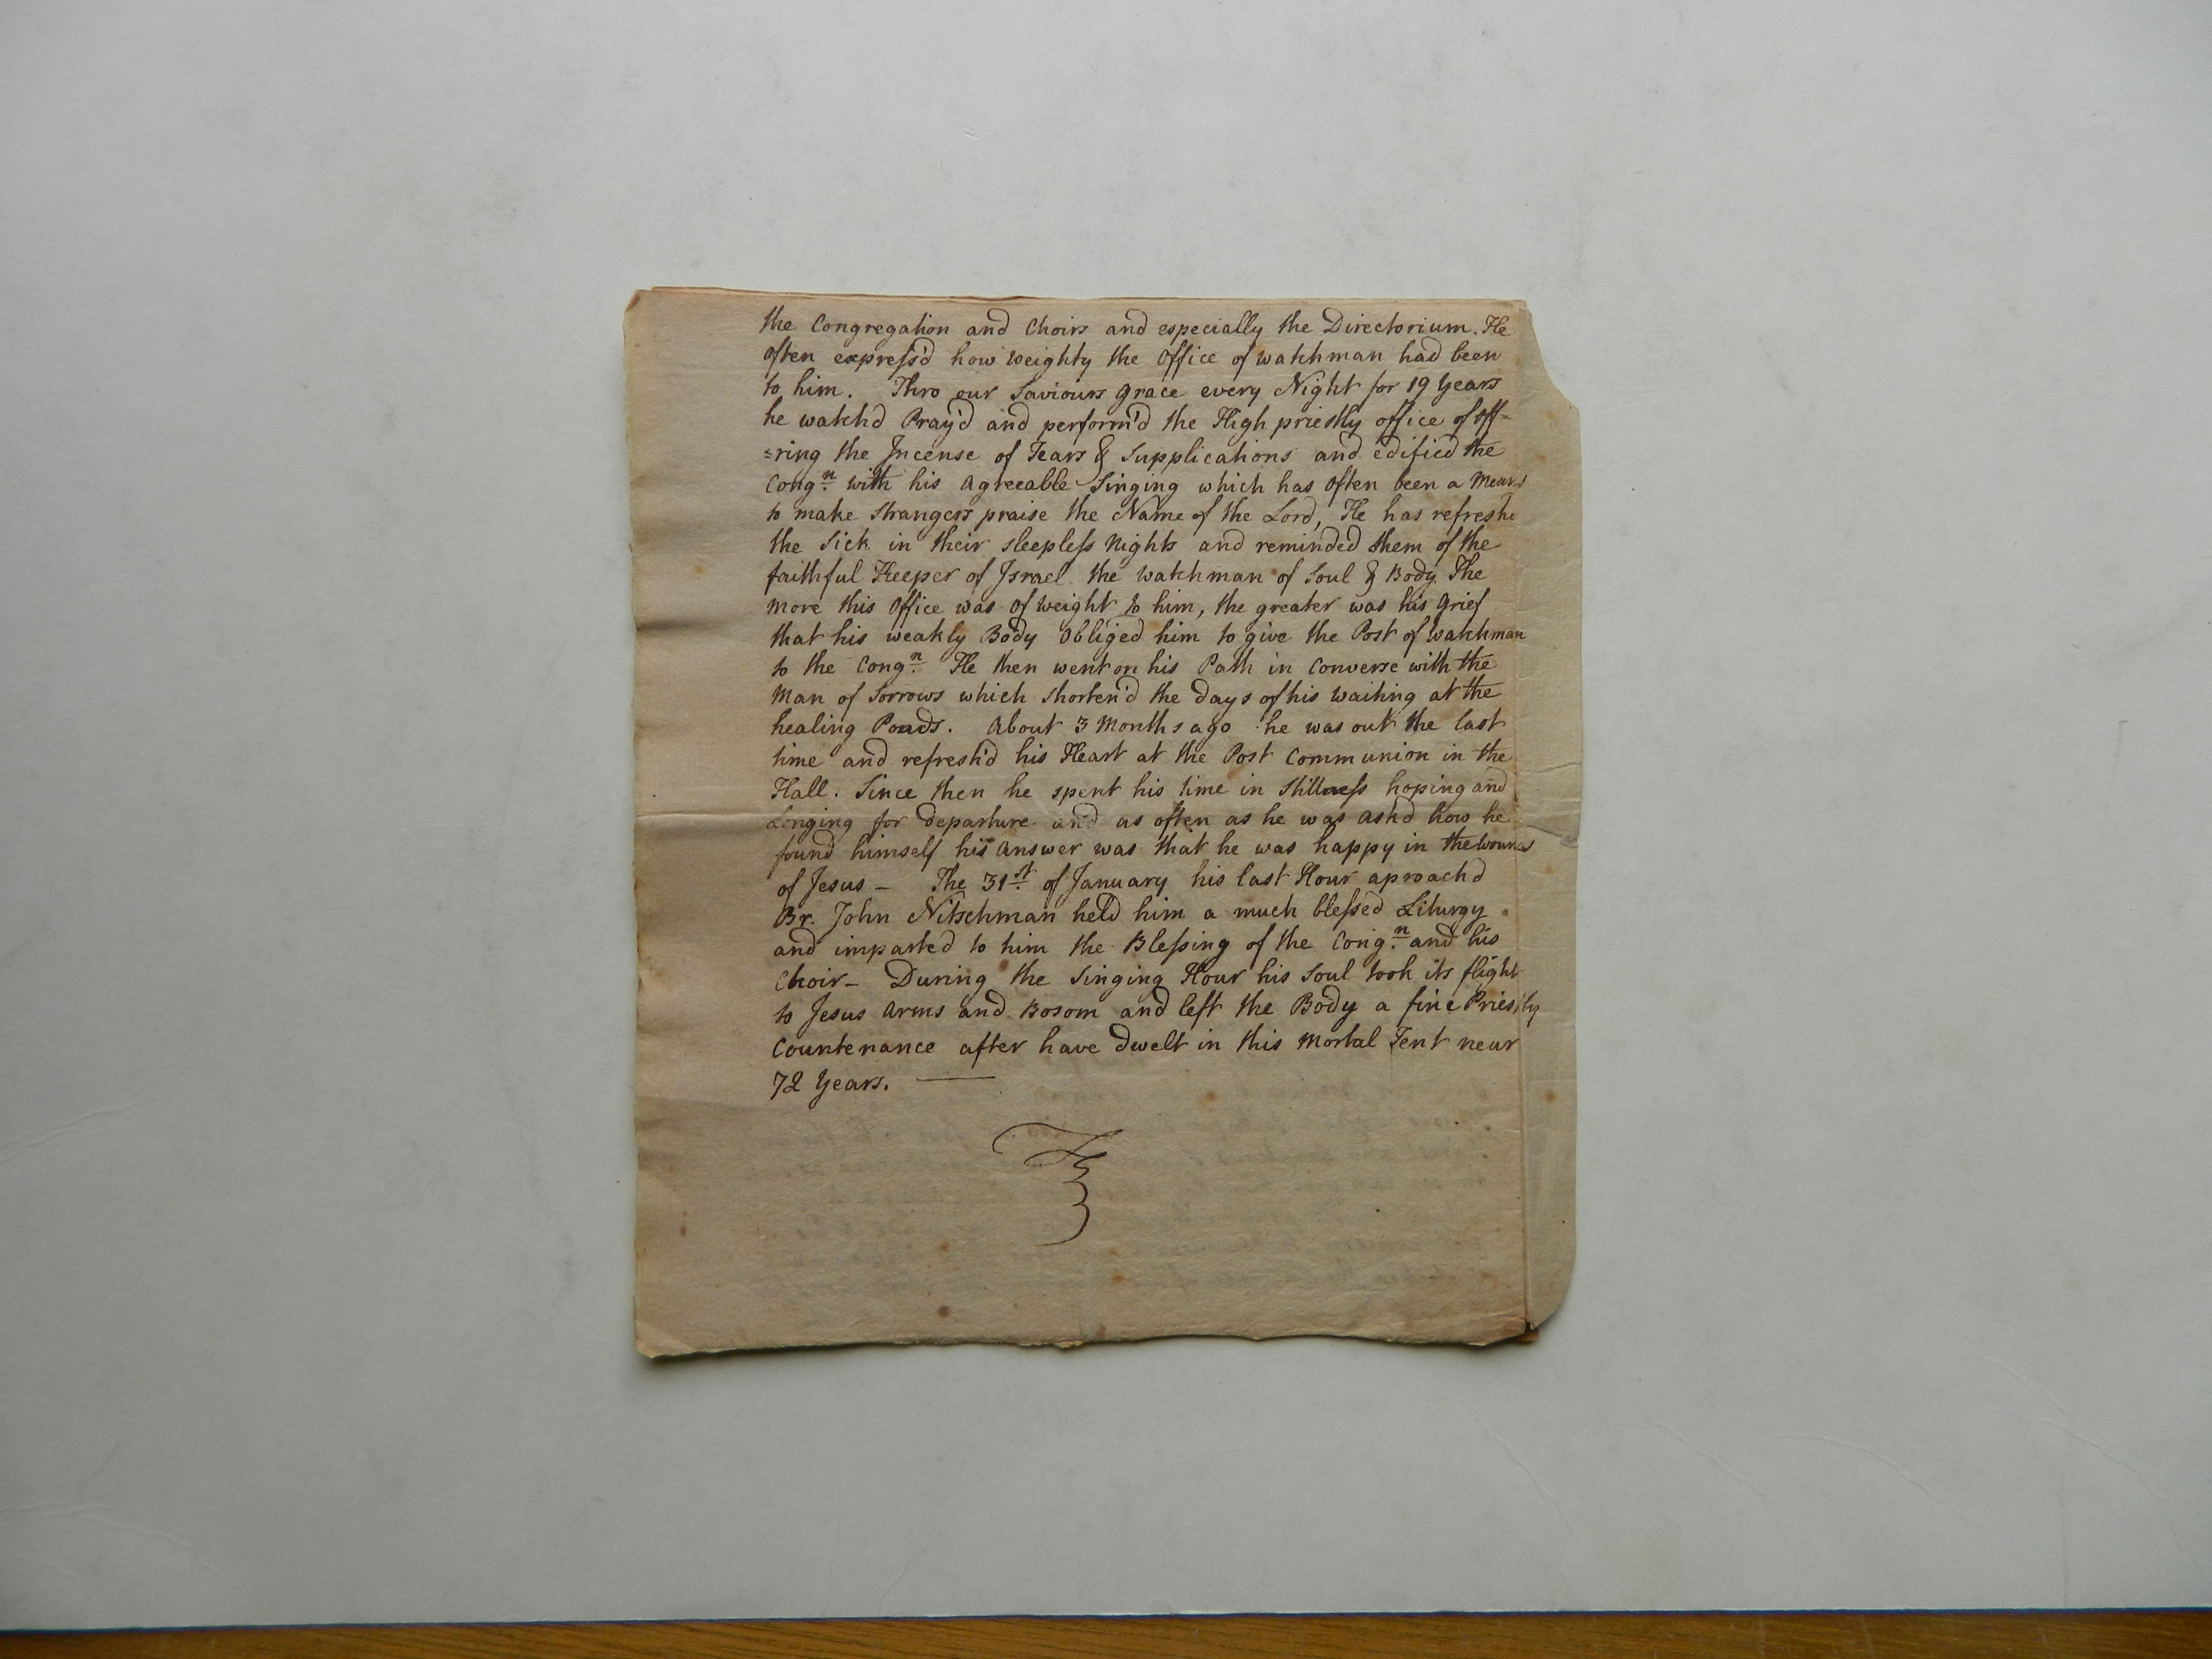 the Congregation and Choirs and especially the Directorium. He
often express'd how weighty the Office of watchman had been
to him. Thro our Saviours grace every Night for 19 Years
he watch'd Pray'd and perform'd the High priestly office of off-
=ring the Incense of Tears & Supplications and edified the
Congn. with his agreeable Singing which has often been a Means
to make strangers praise the Name of the Lord, He has refreshe
the Sick in their sleepless Nights and reminded them of the
faithful Keeper of Israel the watchman of Soul & Body. The
more this Office was of weight to him, the greater was his grief
that his weakly Body Obliged him to give the Post of Watchman
to the Congn. He then went on his Path in Converse with the
Man of Sorrows which shorten'd the days of his waiting at the
healing Ponds. About 3 Months ago he was out the last
time and refresh'd his Heart at the Post Communion in the
Hall. Since then he spent his time in Stillness hoping and
Longing for departure and as often as he was ask'd how he
found himself his answer was that he was happy in the wounds
of Jesus – The 31st. of January his last Hour aproach'd
Br. John Nitschman held him a much blessed Liturgy
and imparted to him the Blessing of the Congn. and his
Choir – During the Singing Hour his Soul took its flight
to Jesus Arms and Bosom and left the Body a fine Priestly
Countenance after have dwelt in this Mortal Tent near
72 Years. —